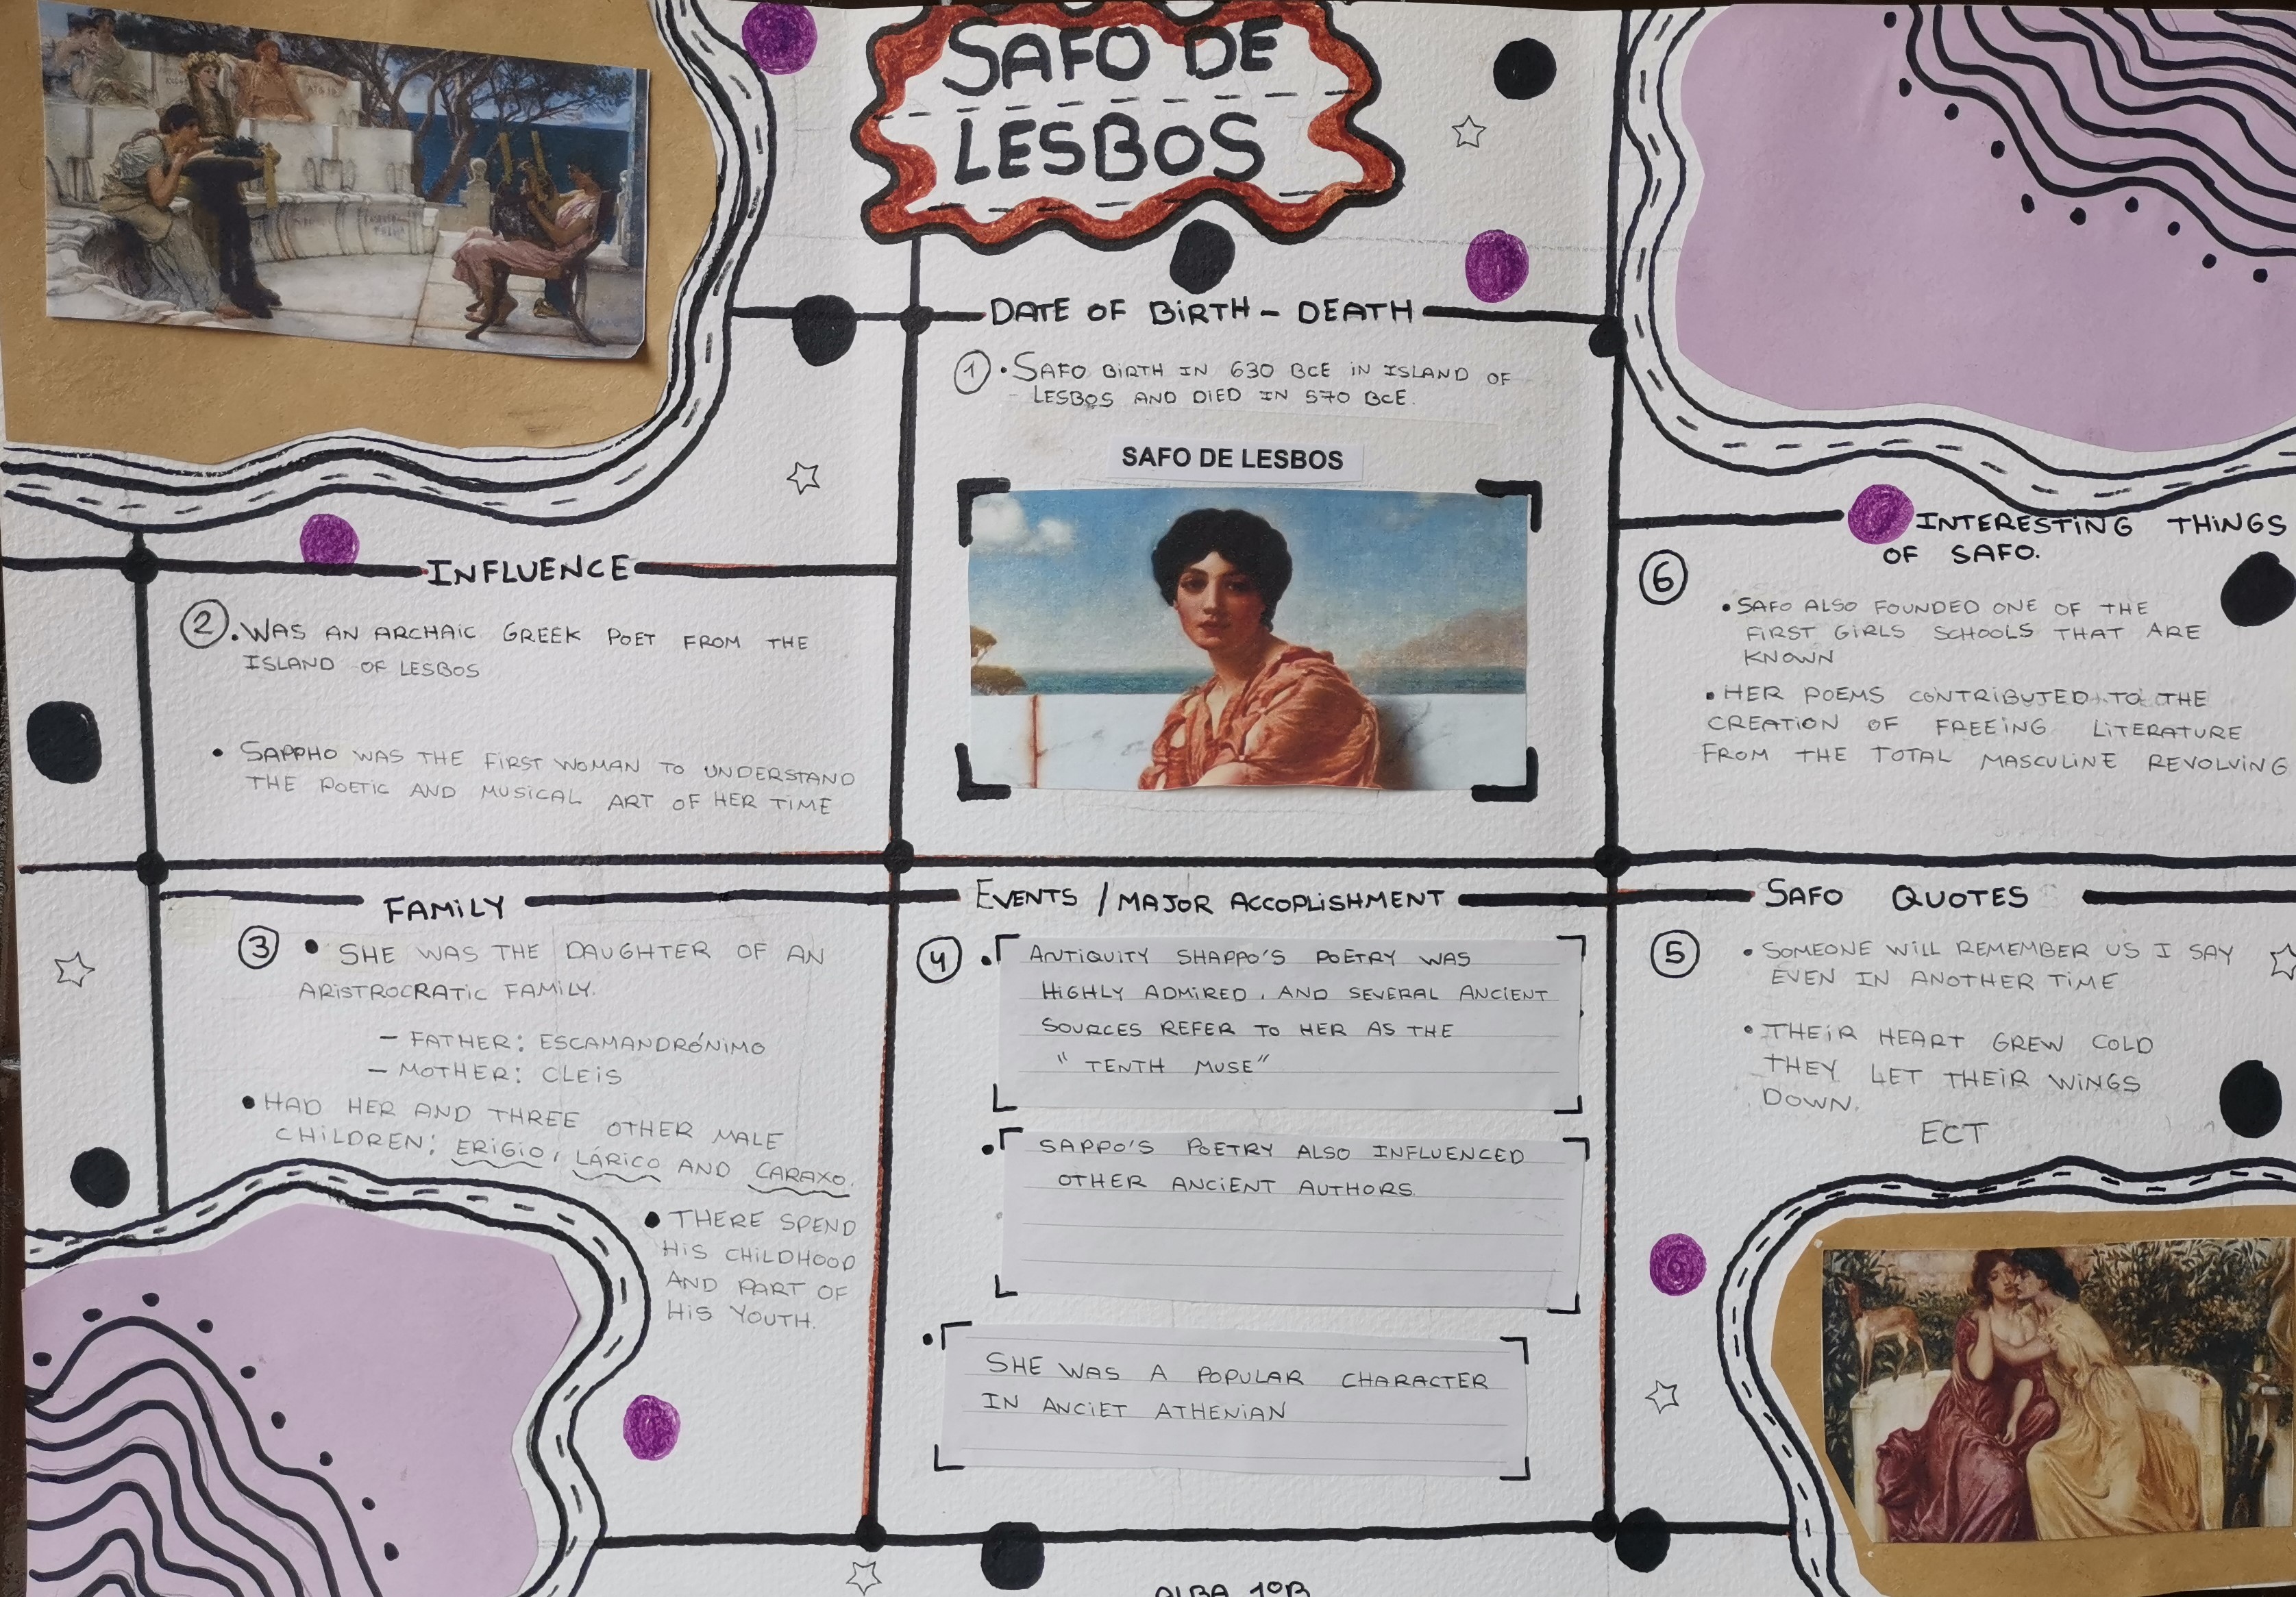 SAFO DE
LESBOS
DATE OF BIRTH - DEATH
1 • SAFO BIRTH IN 630 BCE IN ISLAND OF
LESBOS AND DIED IN 570 BCE.
SAFO DE LESBOS
INFLUENCE
2 • WAS AN ARCHAIC GREEK POET FROM THE
ISLAND OF LESBOS
• SAPPHO WAS THE FIRST WOMAN TO UNDERSTAND
THE POETIC AND MUSICAL ART OF HER TIME
FAMILY
3 • SHE WAS THE DAUGHTER OF AN
ARISTROCRATIC FAMILY.
- FATHER: ESCAMANDRÓNIMO
- MOTHER: CLEIS
• HAD HER AND THREE OTHER MALE
CHILDREN: ERIGIO, LÁRICO AND CARAXO.
• THERE SPEND
HIS CHILDHOOD
AND PART OF
HIS YOUTH.
EVENTS / MAJOR ACCOPLISHMENT
4 • ANTIQUITY SHAPPO'S POETRY WAS
HIGHLY ADMIRED, AND SEVERAL ANCIENT
SOURCES REFER TO HER AS THE
"TENTH MUSE"
• SAPPO'S POETRY ALSO INFLUENCED
OTHER ANCIENT AUTHORS.
• SHE WAS A POPULAR CHARACTER
IN ANCIET ATHENIAN
SAFO QUOTES
5 • SOMEONE WILL REMEMBER US I SAY
EVEN IN ANOTHER TIME
• THEIR HEART GREW COLD
THEY LET THEIR WINGS
DOWN.
ECT
INTERESTING THINGS
OF SAFO.
6
• SAFO ALSO FOUNDED ONE OF THE
FIRST GIRLS SCHOOLS THAT ARE
KNOWN
• HER POEMS CONTRIBUTED TO THE
CREATION OF FREEING LITERATURE
FROM THE TOTAL MASCULINE REVOLVING
ALBA 1ºB